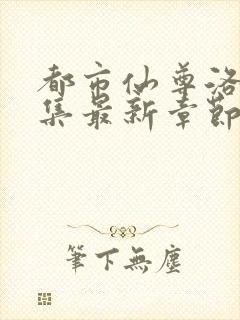 都市仙尊洛
集最新章節
筆下無塵